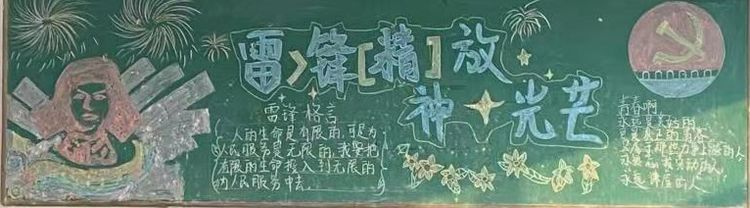 雷锋[精]放
神光芒
雷锋格言
人的生命是有限的,可是为
人民服务是无限的,我要把
有限的生命投入到无限的
为人民服务中去。
青春啊,
永远是美好的,
可是真正的青春
只属于那些力争上游的人
永远忘我劳动的人
永远谦虚的人